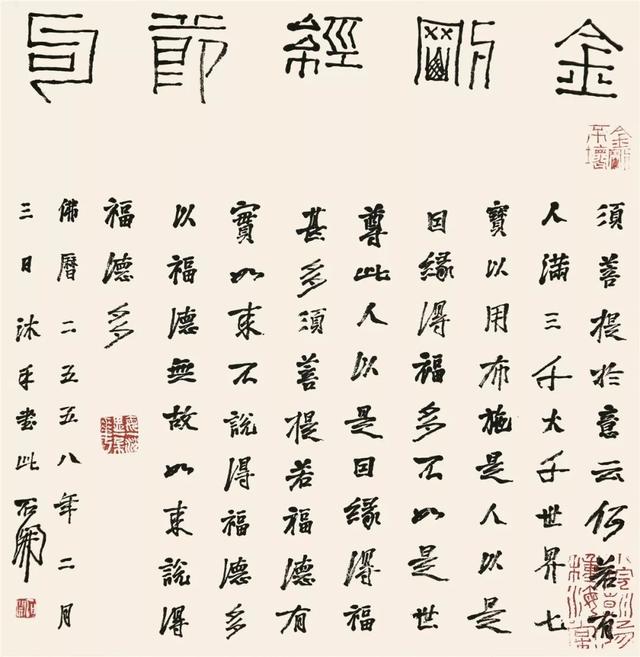 金剛經節
須菩提於意云何若有
人滿三千大千世界七
寶以用布施是人以是
因緣得福多不如是世
尊此人以是因緣得福
甚多須菩提若福德有
實如來不說得福德多
以福德無故如來說得
福德多
佛曆二五五八年二月
三日沐手書此石開
金剛不壞